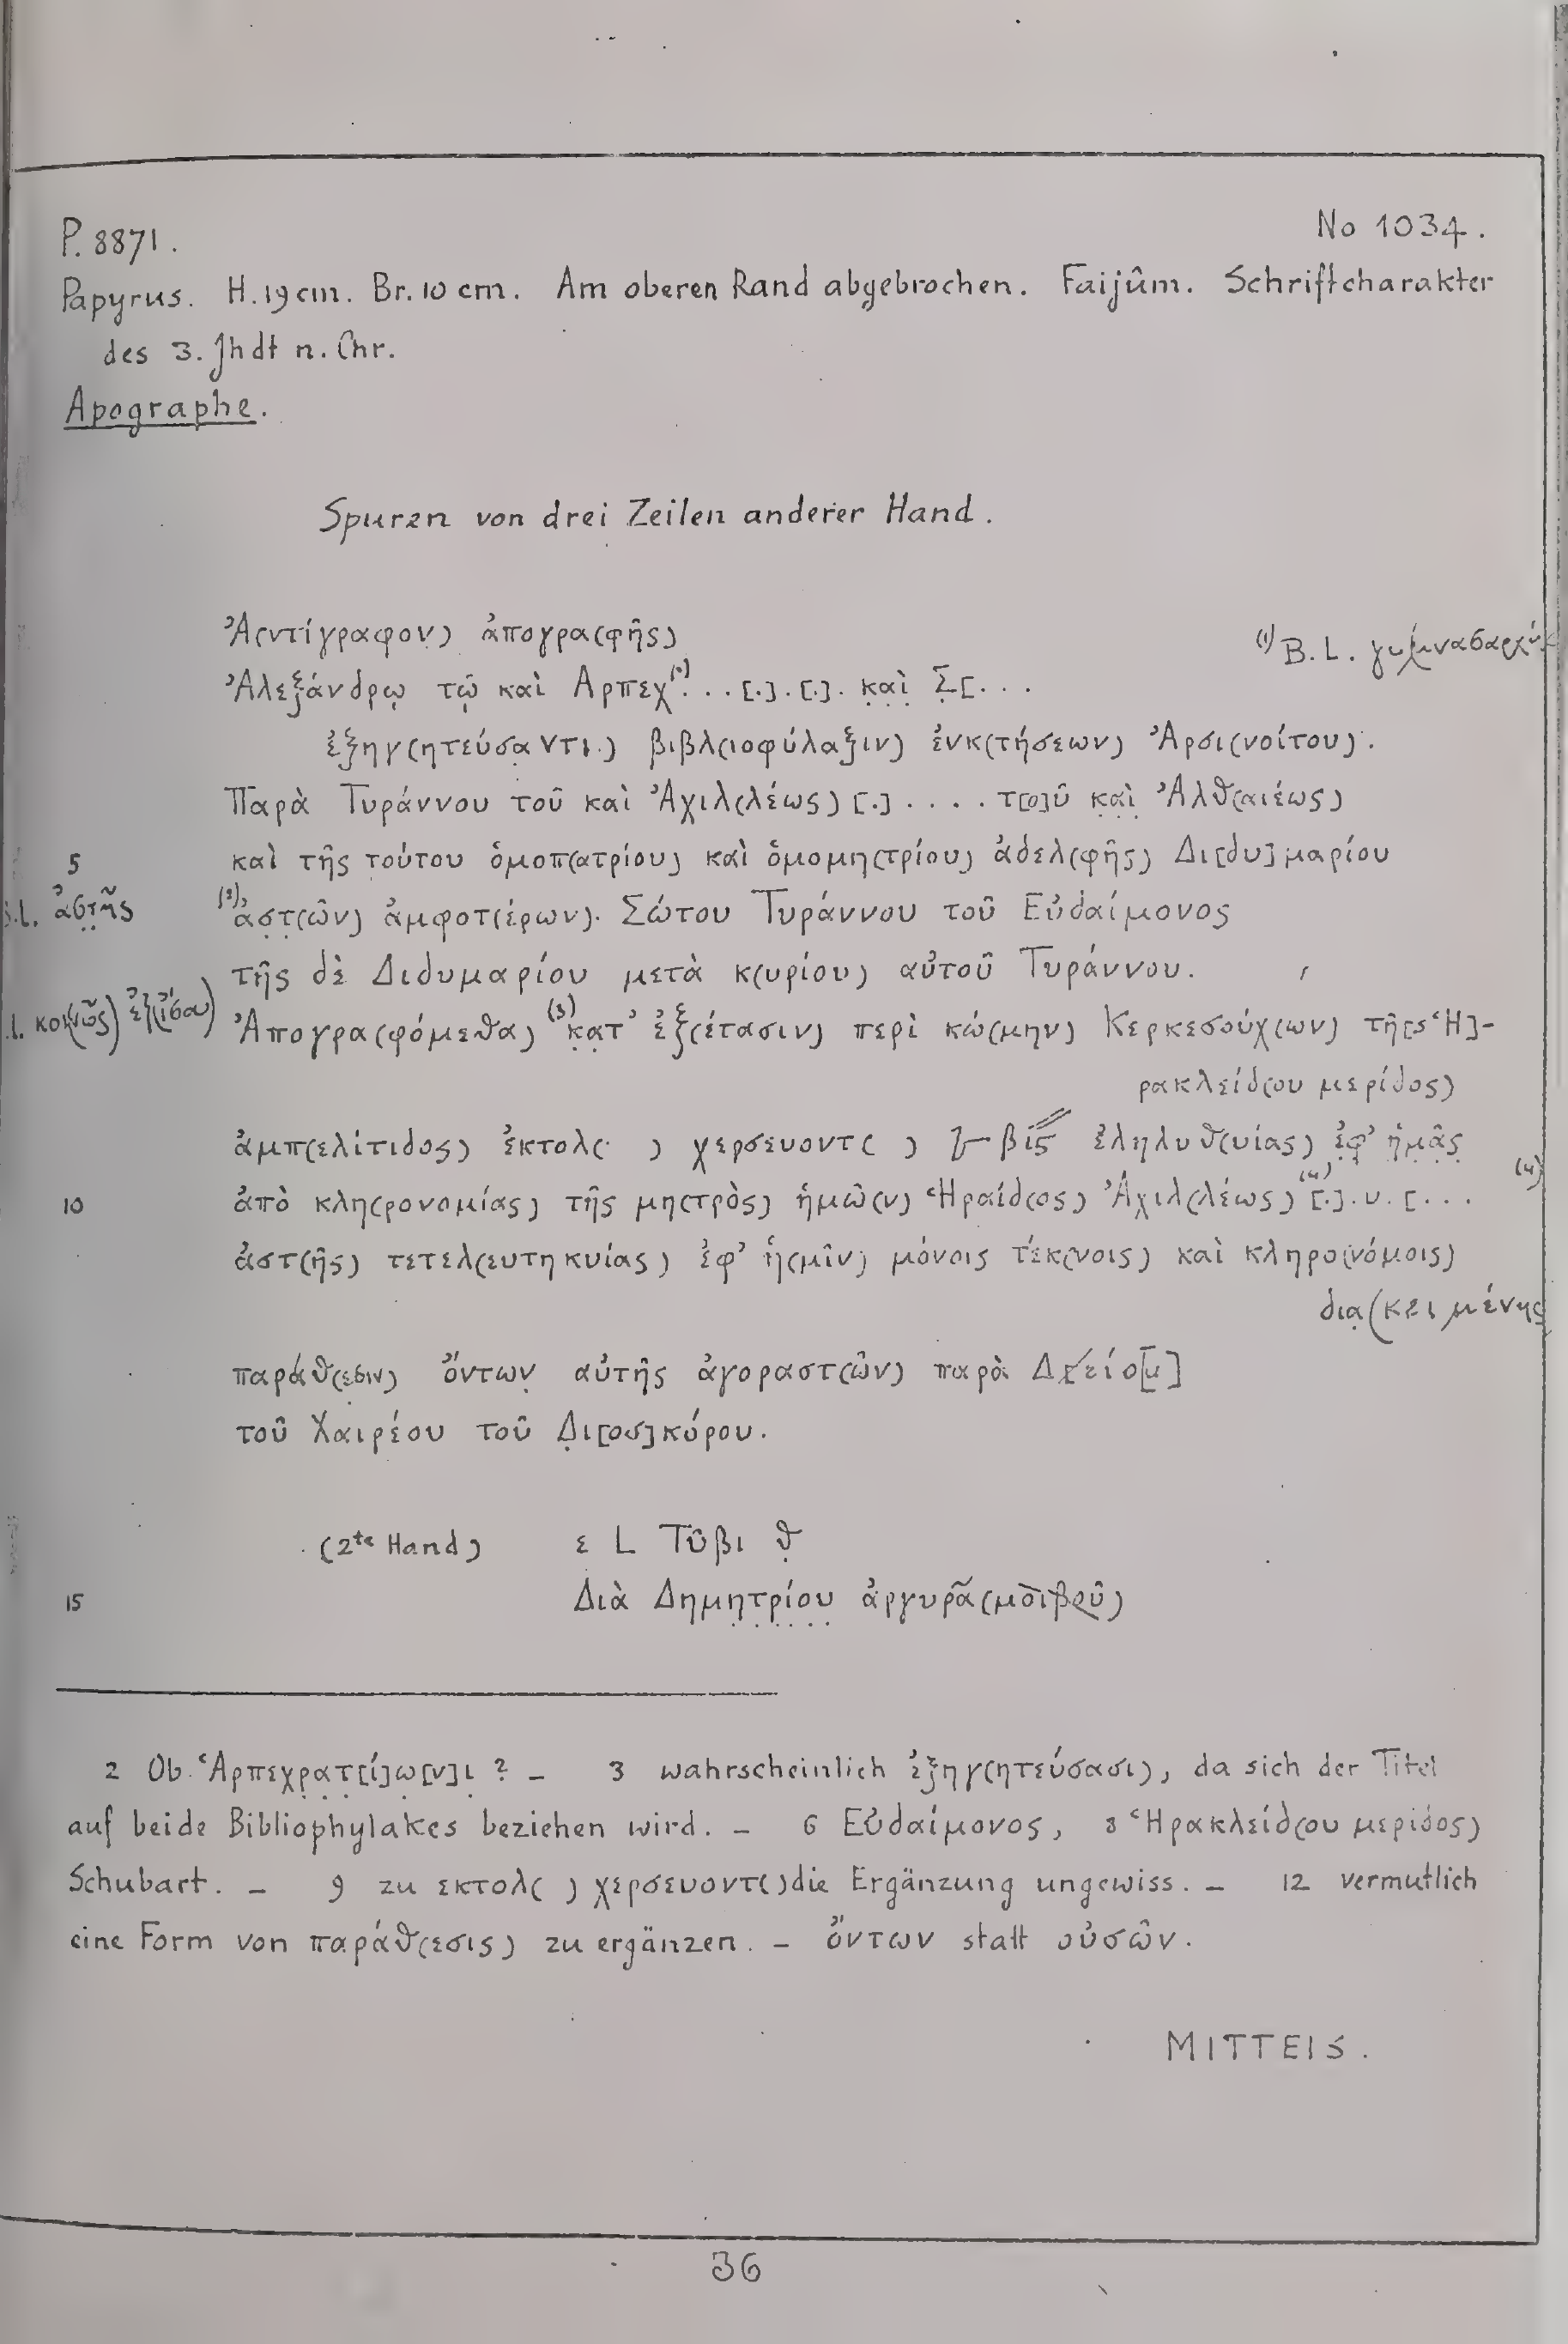 P. 8871.
No 1034.
Papyrus. H. 19 cm. Br. 10 cm. Am oberen Rand abgebrochen. Faijûm. Schriftcharakter
des 3. Jhdt n. Chr.
Apographe.
Spuren von drei Zeilen anderer Hand.
Ἀ(ντίγραφον) ἀπογρα(φῆς)
(1) B.L. γυμνασιαρχ
Ἀλεξάνδρῳ τῷ καὶ Αρπεχ(1)... [.].[.]. καὶ Σ[...
ἐξηγ(ητεύσαντι) βιβλ(ιοφύλαξιν) ἐνκ(τήσεων) Ἀρσι(νοίτου).
Παρὰ Τυράννου τοῦ καὶ Ἀχιλ(λέως) [.] .... τ[ο]ῦ καὶ Ἀλθ(αιέως)
5 καὶ τῆς τούτου ὁμοπ(ατρίου) καὶ ὁμομη(τρίου) ἀδελ(φῆς) Δι[δυ]μαρίου
B.L. ἀστῆς (2) ἀστ(ῶν) ἀμφοτ(έρων). Σώτου Τυράννου τοῦ Εὐδαίμονος
τῆς δὲ Διδυμαρίου μετὰ κ(υρίου) αὐτοῦ Τυράννου.
l. κοι(νῶς) ἐξ (ἴσου) Ἀπογρα(φόμεθα) (3) κατ' ἐξ(έτασιν) περὶ κώ(μην) Κερκεσούχ(ων) τῆ[ς Ἡ]-
ρακλείδ(ου μερίδος)
ἀμπ(ελίτιδος) ἐκτολ( ) χερσευοντ( ) βις ἐληλυθ(υίας) ἐφ' ἡμᾶς
10 ἀπὸ κλη(ρονομίας) τῆς μη(τρὸς) ἡμῶ(ν) Ἡραίδ(ος) Ἀχιλ(λέως) (4) [.].υ.[... (4)
ἀστ(ῆς) τετελ(ευτηκυίας) ἐφ' ἡ(μῖν) μόνοις τέκ(νοις) καὶ κληρο(νόμοις)
δια(κειμένης
παράθ(εσιν) ὄντων αὐτῆς ἀγοραστ(ῶν) παρὰ Δ είο[υ]
τοῦ Χαιρέου τοῦ Δι[οσ]κόρου.
(2te Hand) ε L Τῦβι θ
15 Διὰ Δημητρίου ἀργυρα(μοιβοῦ)
2 Ob Ἁρπεχρατ[ί]ω[ν]ι ? – 3 wahrscheinlich ἐξηγ(ητεύσασι), da sich der Titel
auf beide Bibliophylakes beziehen wird. – 6 Εὐδαίμονος, 8 Ἡρακλείδ(ου μερίδος)
Schubart. – 9 zu εκτολ( ) χερσευοντ( ) die Ergänzung ungewiss. – 12 vermutlich
eine Form von παράθ(εσις) zu ergänzen. – ὄντων statt οὐσῶν.
MITTEIS.
36